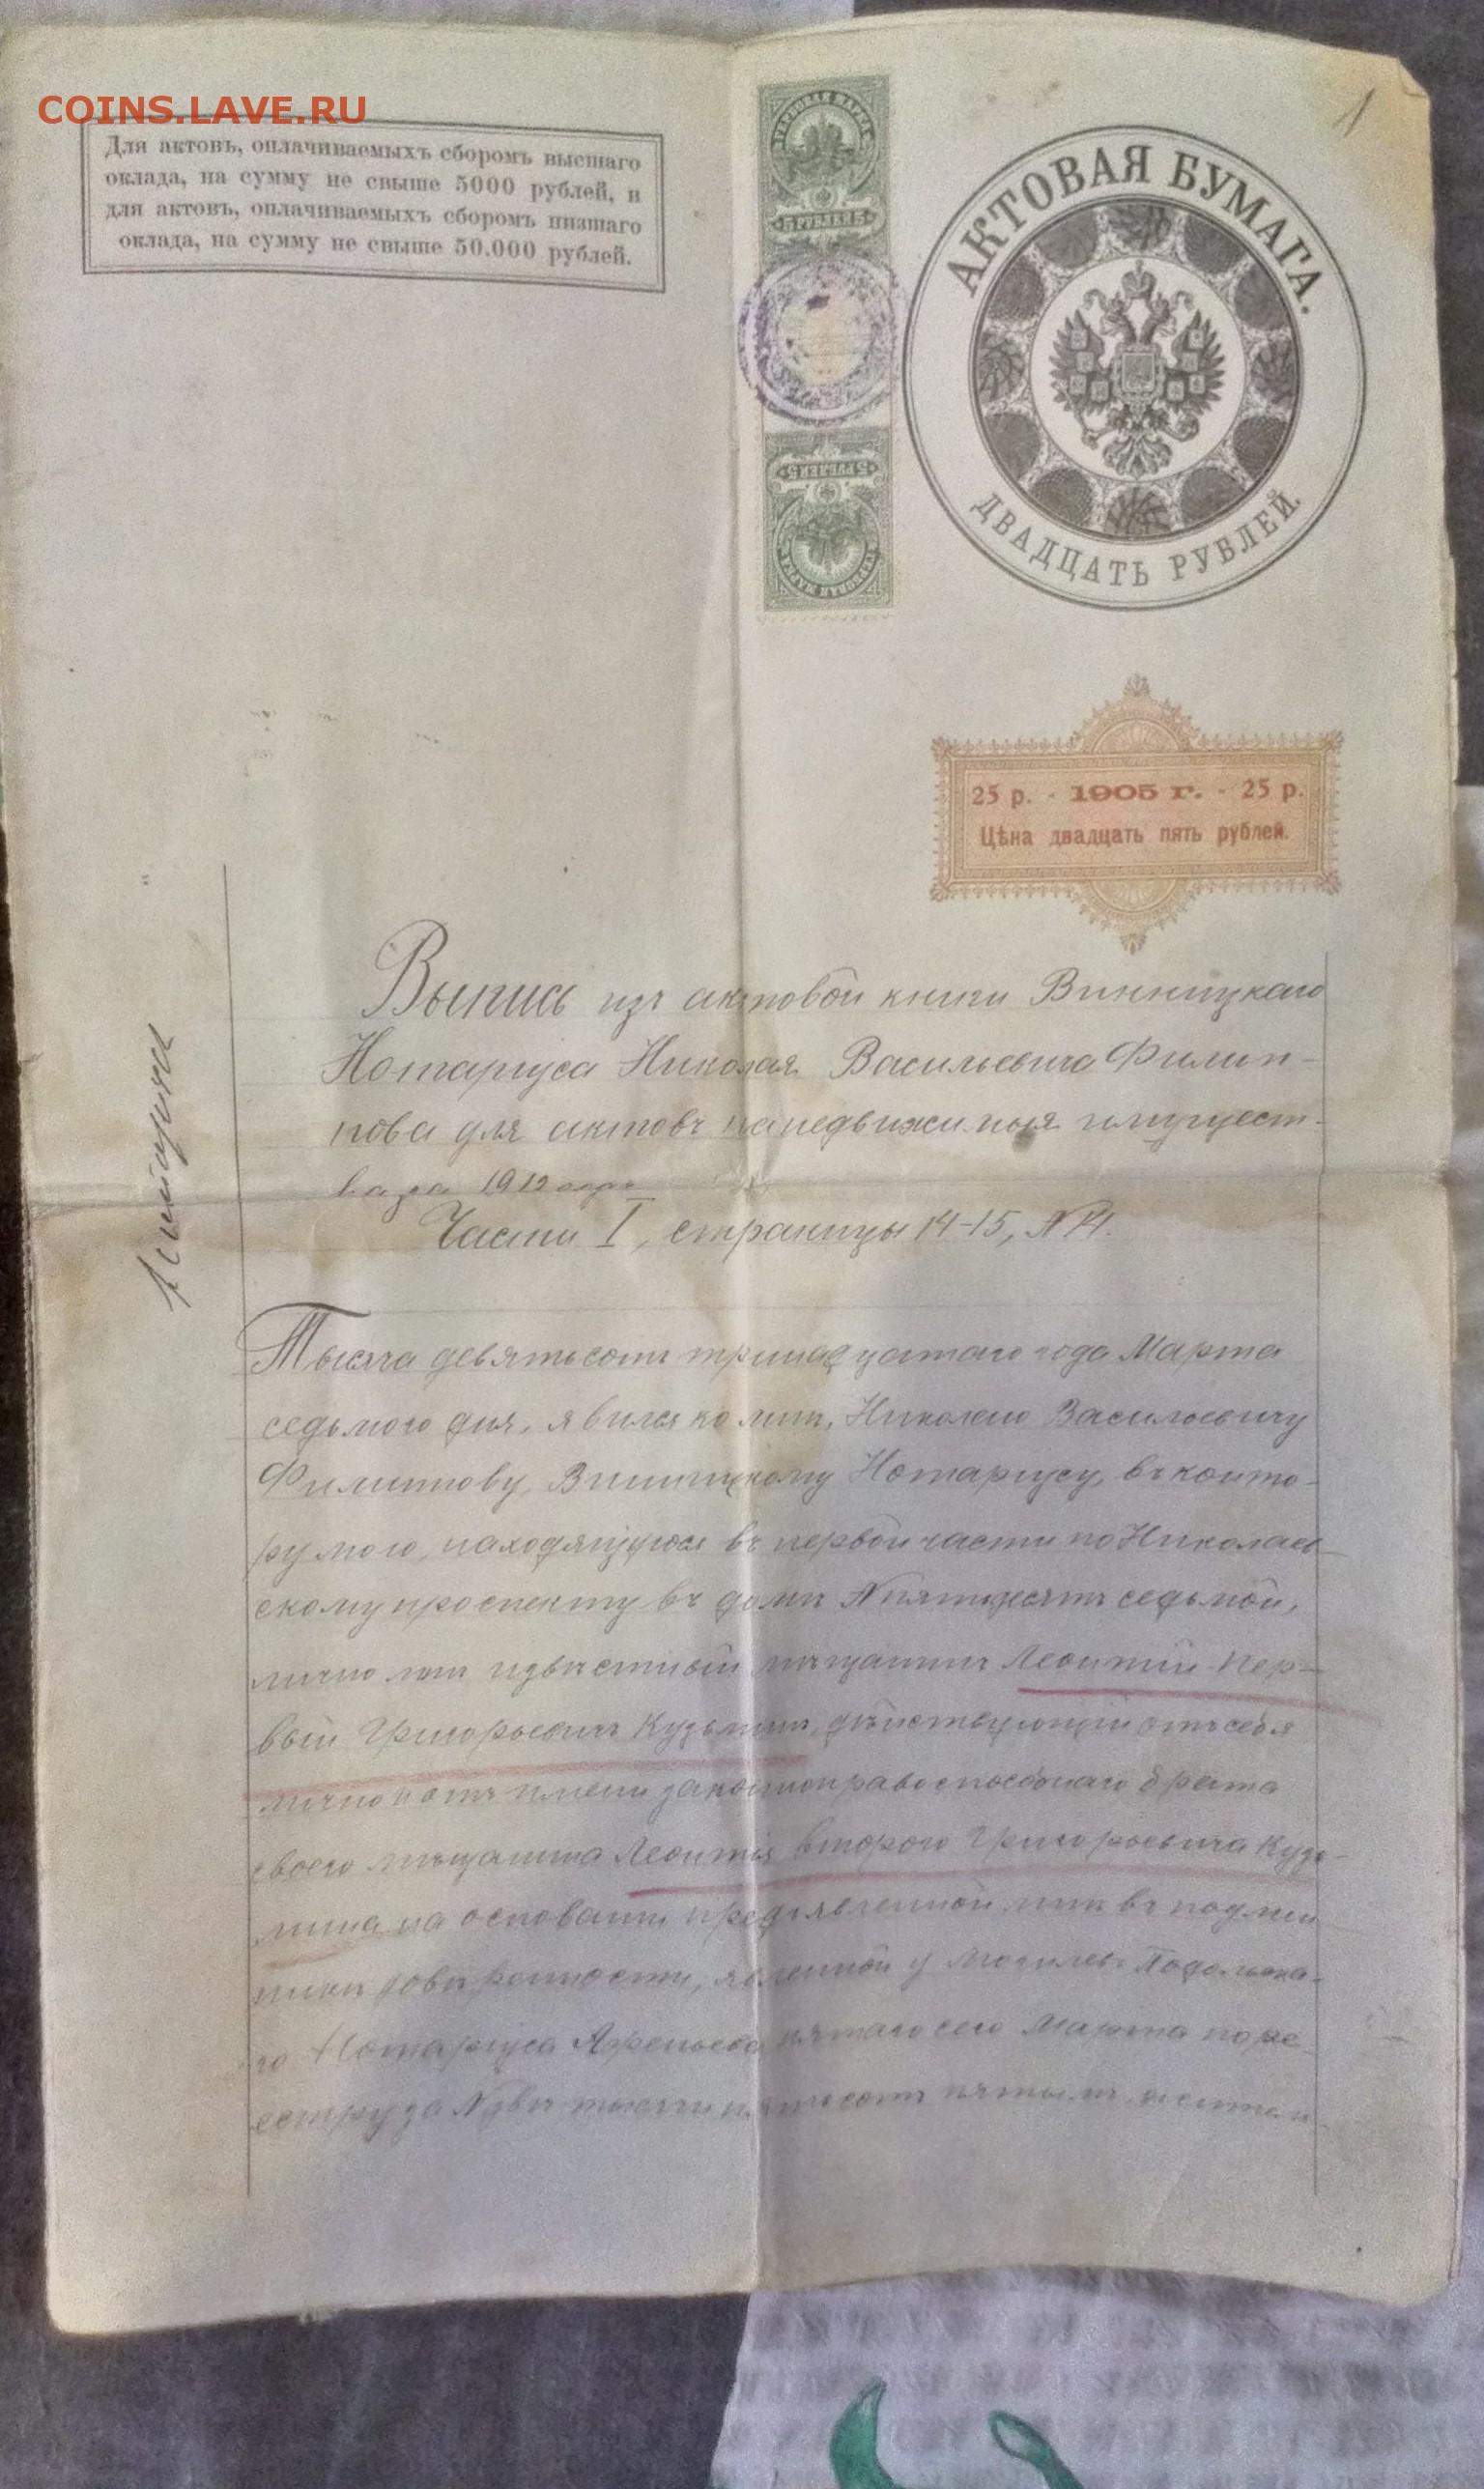 COINS.LAVE.RU
Для актовъ, оплачиваемыхъ сборомъ высшаго
оклада, на сумму не свыше 5000 рублей, и
для актовъ, оплачиваемыхъ сборомъ низшаго
оклада, на сумму не свыше 50.000 рублей.
ГЕРБОВАЯ МАРКА
5 РУБЛЕЙ 5
5 РУБЛЕЙ 5
ГЕРБОВАЯ МАРКА
1
АКТОВАЯ БУМАГА.
ДВАДЦАТЬ РУБЛЕЙ.
25 р. - 1905 г. - 25 р.
Цѣна двадцать пять рублей.
Выпись изъ актовой книги Винницкаго
Нотаріуса Николая Васильевича Филип-
пова для актовъ на недвижимыя имущест-
ва за 1912 годъ
Части I, страницы 14-15, N 14.
Тысяча девятьсотъ тринадцатаго года Марта
седьмого дня, явился ко мнѣ, Николаю Васильевичу
Филиппову, Винницкому Нотаріусу, въ конто-
ру мою, находящуюся въ первой части по Николаев-
скому проспекту въ домѣ N пятьдесятъ седьмой,
лично мнѣ извѣстный мѣщанинъ Леонтій Пер-
вый Григорьевичъ Кузьминъ, дѣйствующій отъ себя
лично и отъ имени законоправоспособнаго брата
своего мѣщанина Леонтія второго Григорьевича Кузь-
мина на основаніи предъявленной мнѣ въ подлин
никѣ довѣренности, явленной у Могилевъ Подольска-
го Нотаріуса Арсеньева пятаго сего Марта по ре
естру за N двѣ тысячи пятьсотъ пятымъ